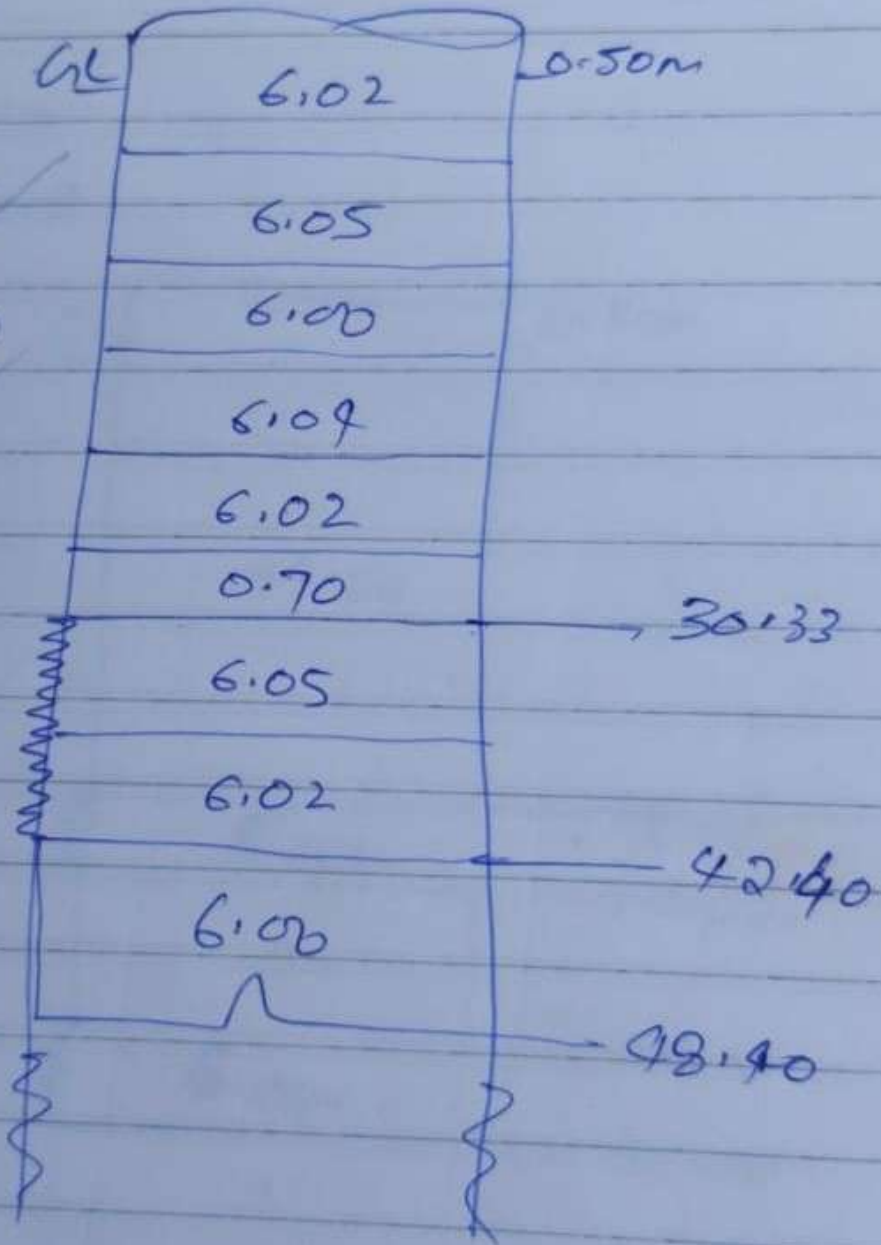 GL 6.02 0.50m
6.05
6.00
6.04
6.02
0.70
30.33
6.05
6.02
42.40
6.00
48.40